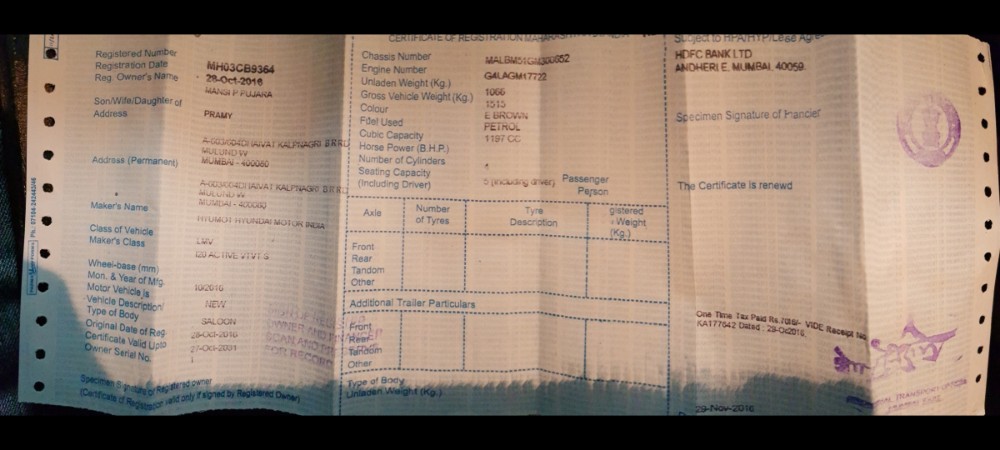 CERTIFICATE OF REGISTRATION
Registered Number MH03CB9364
Registration Date 28-Oct-2016
Reg. Owner's Name MANSI P PUJARA
Son/Wife/Daughter of PRAMY
Address
MULUND W
MUMBAI - 400080
Address (Permanent)
MULUND W
MUMBAI - 400080
Maker's Name HYUMOT HYUNDAI MOTOR INDIA
Class of Vehicle LMV
Maker's Class I20 ACTIVE VTVT S
Wheel-base (mm)
Mon. & Year of Mfg. 10/2016
Motor Vehicle is NEW
Vehicle Description/
Type of Body SALOON
Original Date of Reg 28-Oct-2016
Certificate Valid Upto
Owner Serial No. 1
Specimen Signature of Registered owner
(Certificate of Registration valid only if signed by Registered Owner)
Chassis Number
Engine Number G4LAGM17722
Unladen Weight (Kg.) 1066
Gross Vehicle Weight (Kg.) 1515
Colour E BROWN
Fuel Used PETROL
Cubic Capacity 1197 CC
Horse Power (B.H.P.)
Number of Cylinders
Seating Capacity
(Including Driver) 5 (including driver) Passenger
Person
Axle Number of Tyres Tyre Description gistered Weight (Kg.)
Front
Rear
Tandom
Other
Additional Trailer Particulars
Front
Rear
Tandom
Other
Type of Body
Unladen Weight (Kg.)
Subject to HPA/HYP/Lease Agre
HDFC BANK LTD
ANDHERI E, MUMBAI, 40059.
Specimen Signature of
The Certificate is renewd
One Time Tax Paid Rs. VIDE Receipt No
KA177642 Dated : 29-Oc2016,
29-Nov-2016